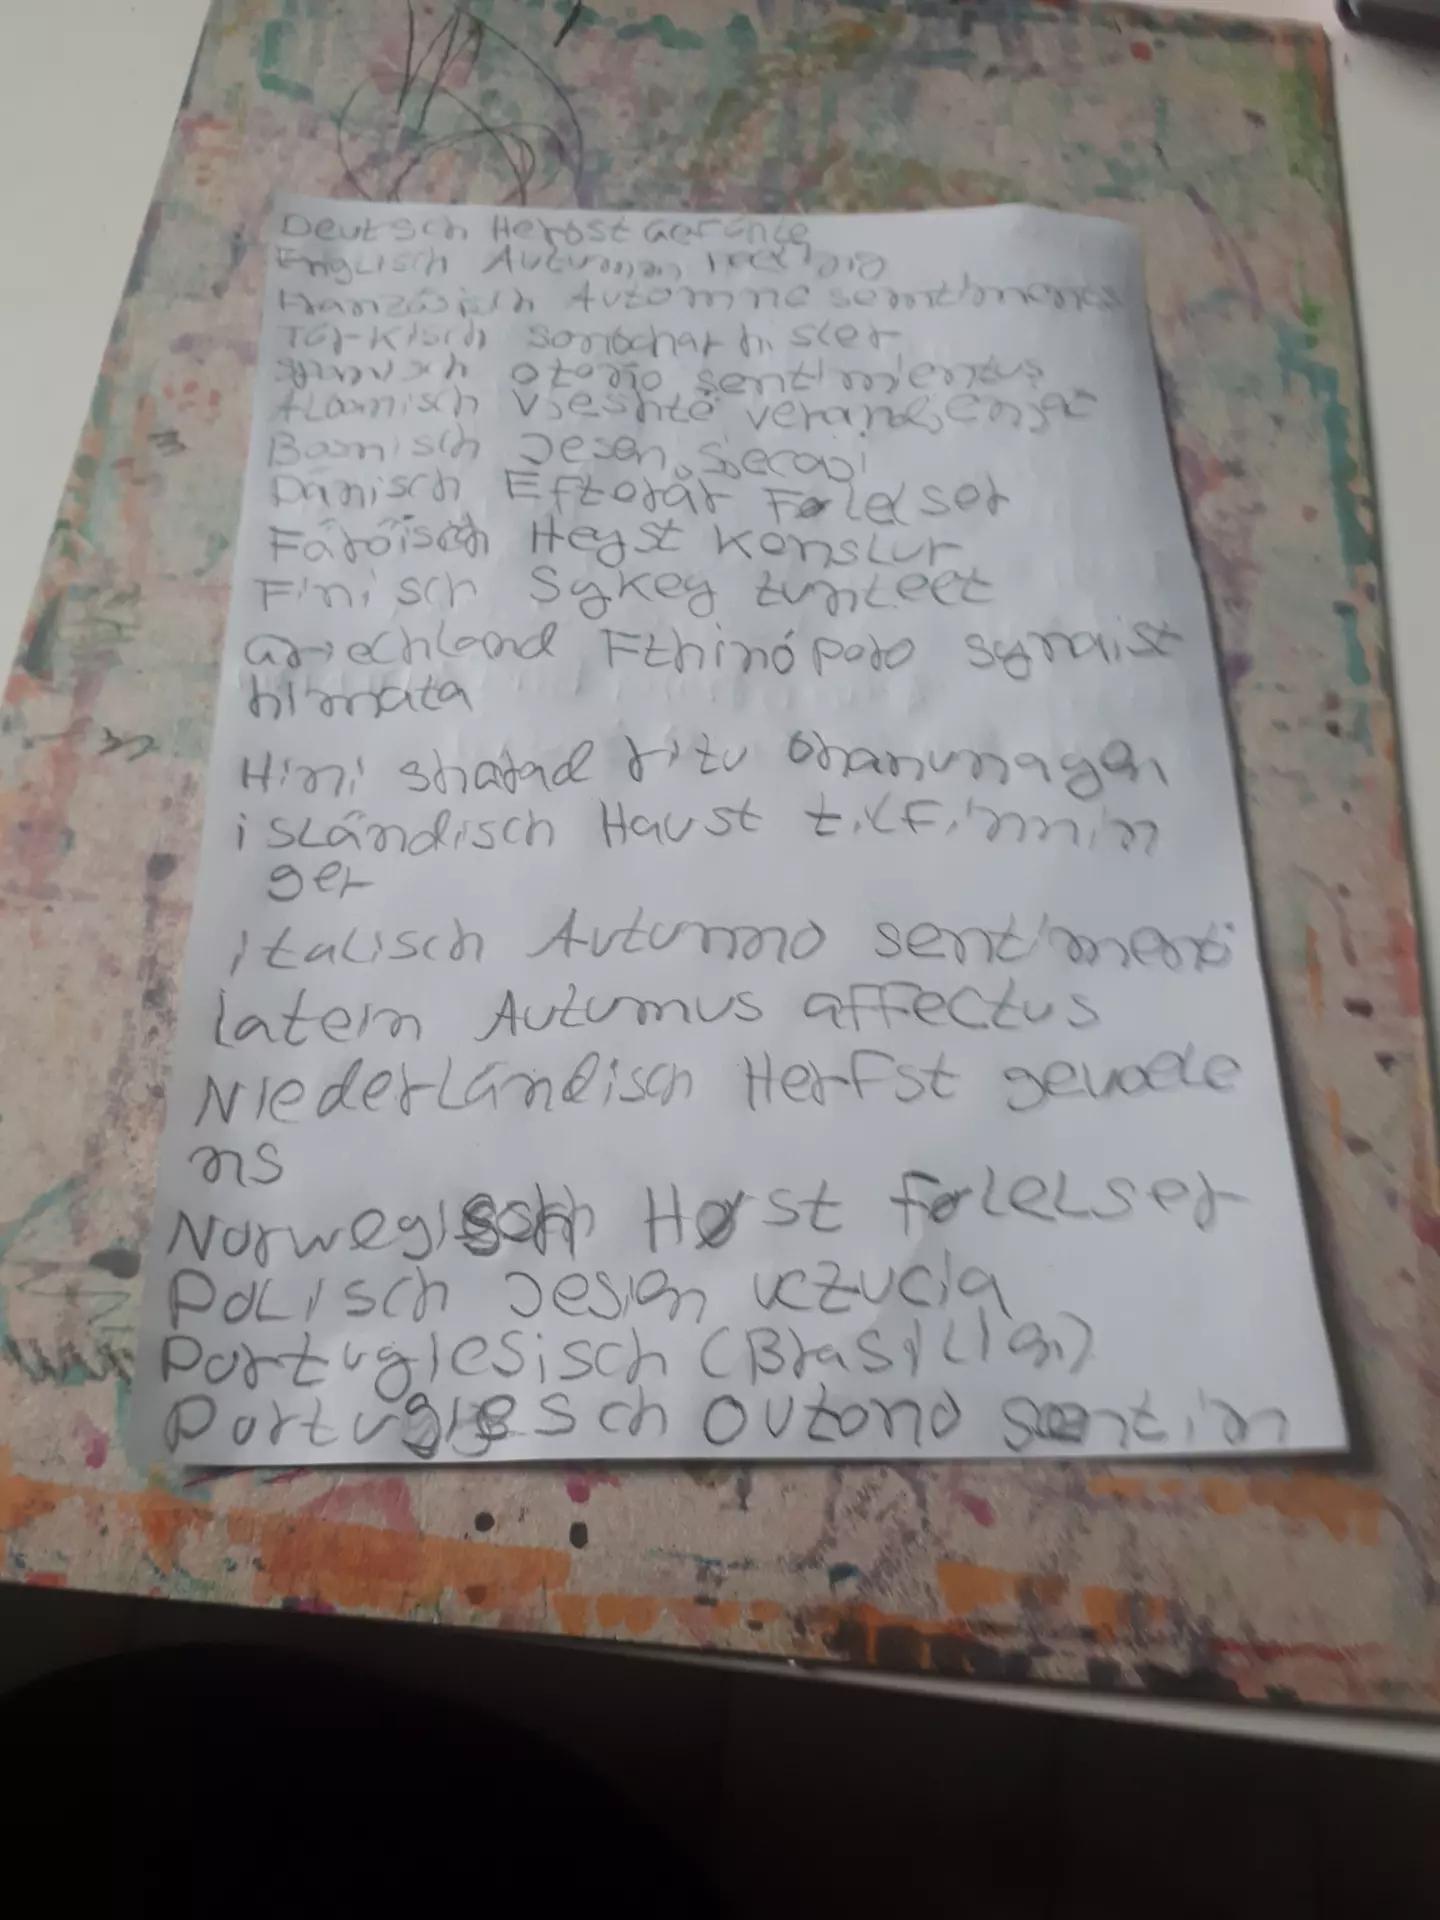 Deutsch Herbst Gefühle
Englisch Autumn feeling
Französisch Automne sentiments
Türkisch Sonbahar hisler
Spanisch otoño sentimientus
Albanisch Vjeshtë verandjenjat
Bosnisch Jesen osjecaji
Dänisch Efterår Følelser
Färöisch Heyst Kenslur
Finisch Sykey tunteet
Griechland Fthinóporo synaist
himata
Hini sharad ritu
isländisch Haust tilfinnin
ger
italisch Autunno sentimenti
latein Autumus affectus
Niederländisch Herfst gevoele
ns
Norwegisch Høst følelser
Polisch Jesien uczucia
Portugiesisch (Brasilien)
Portugiesch Outono sentim